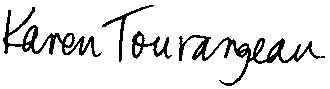 Karen Tourangeau